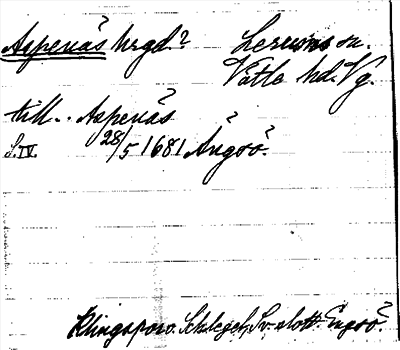 Aspenäs hrgd? Lerums sn.
Vätle hd. Vg.
till.. Aspenäs
S.IV. 28/5 1681 Ängsö.
Klingspor o. Schlegel, Sv. slott. Engsö.